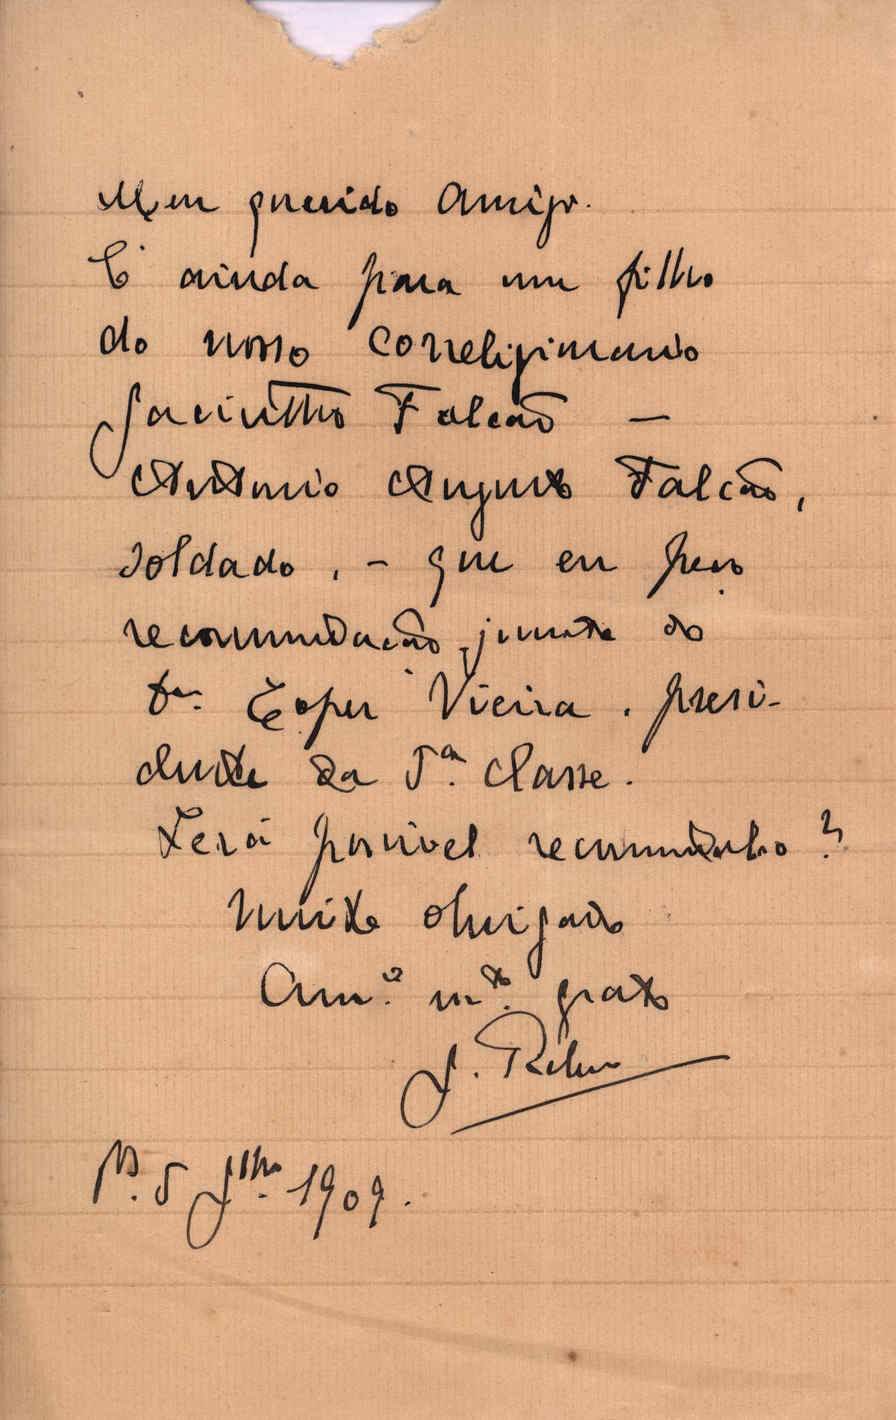 Meu querido Amigo.
É ainda para um filho
do nosso correligionario
Jacintho Falcão —
Antonio Augusto Falcão,
soldado, - que eu peço
recommendação junto do
Dr. Lopes Vieira, presi-
dente da 5ª classe.
Será possivel recommendal-o?
Muito obrigado
Am.º m.to grato
J.
5 1909.